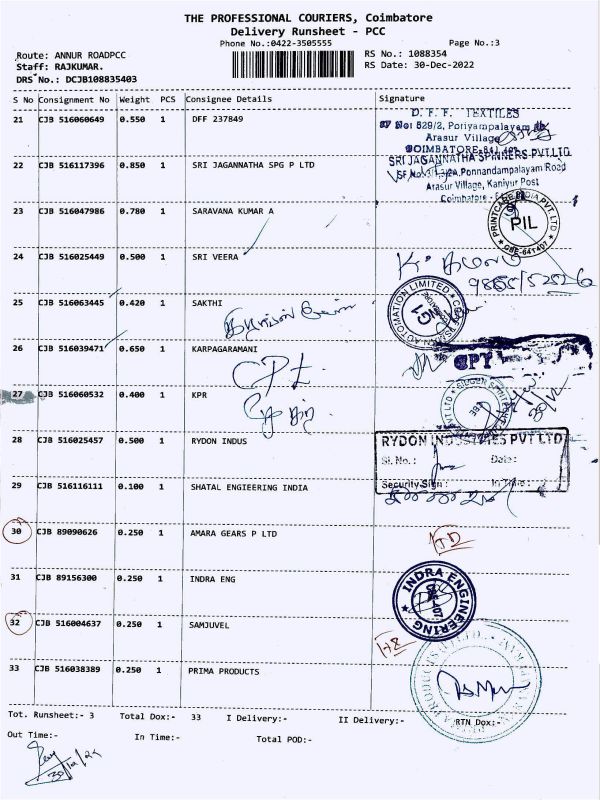 THE PROFESSIONAL COURIERS, Coimbatore
Delivery Runsheet - PCC
Phone No.:0422-3505555
Page No.:3
Route: ANNUR ROADPCC
RS No.: 1088354
Staff: RAJKUMAR.
RS Date: 30-Dec-2022
DRS No.: DCJB108835403
S No Consignment No Weight PCS Consignee Details Signature
21 CJB 516060649 0.550 1 DFF 237849
D. F. F. TEXTILES
829/2, Poriyampalayam
Arasur Village
COIMBATORE-641 407
22 CJB 516117396 0.850 1 SRI JAGANNATHA SPG P LTD
SRI JAGANNATHA SPINNERS PVT LTD
Ponnandampalayam Road
Arasur Village, Kaniyur Post
Coimbatore
23 CJB 516047986 0.780 1 SARAVANA KUMAR A
PRINTCARE INDIA PVT. LTD
PIL
CBE-641407
24 CJB 516025449 0.500 1 SRI VEERA
25 CJB 516063445 0.420 1 SAKTHI
26 CJB 516039471 0.650 1 KARPAGARAMANI
27 CJB 516060532 0.400 1 KPR
28 CJB 516025457 0.500 1 RYDON INDUS
RYDON INDUSTRIES PVT LTD
Sl. No.: Date:
Security Sign: In Time:
29 CJB 516116111 0.100 1 SHATAL ENGIEERING INDIA
30 CJB 89090626 0.250 1 AMARA GEARS P LTD
31 CJB 89156300 0.250 1 INDRA ENG
INDRA ENGINEERING
32 CJB 516004637 0.250 1 SAMJUVEL
33 CJB 516038389 0.250 1 PRIMA PRODUCTS
Tot. Runsheet:- 3 Total Dox:- 33 I Delivery:- II Delivery:- RTN Dox:-
Out Time:- In Time:- Total POD:-
30/12/22